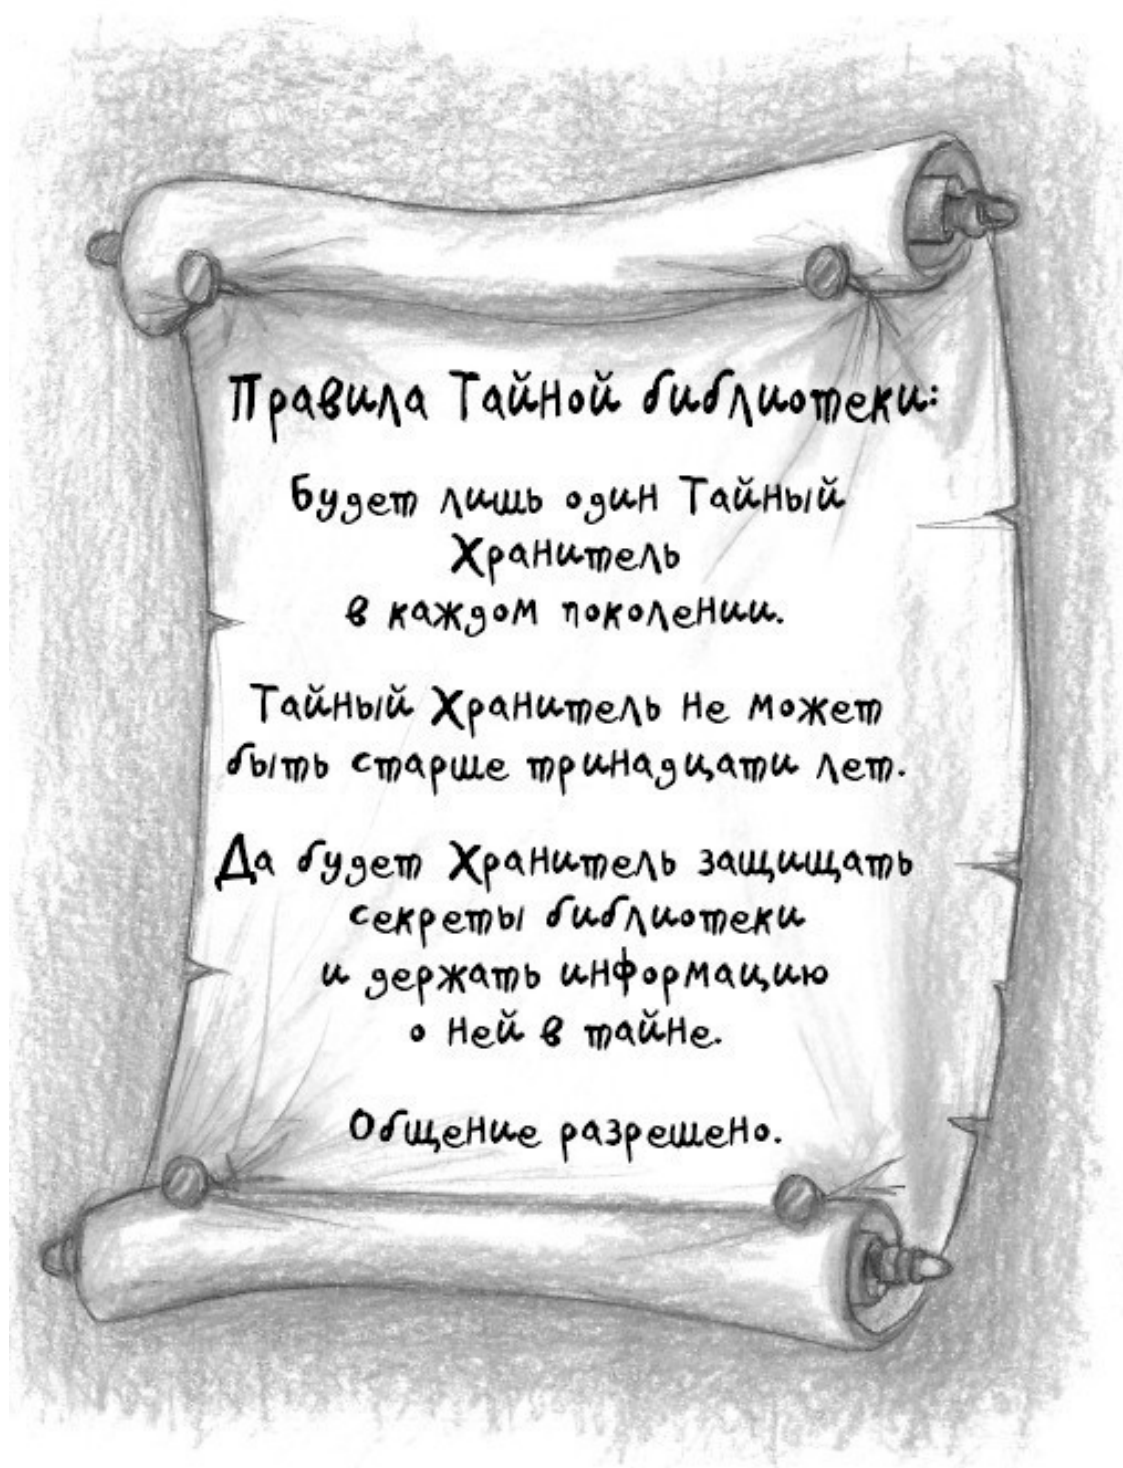 Правила Тайной библиотеки:
Будет лишь один Тайный
Хранитель
в каждом поколении.
Тайный Хранитель не может
быть старше тринадцати лет.
Да будет Хранитель защищать
секреты библиотеки
и держать информацию
о ней в тайне.
Общение разрешено.